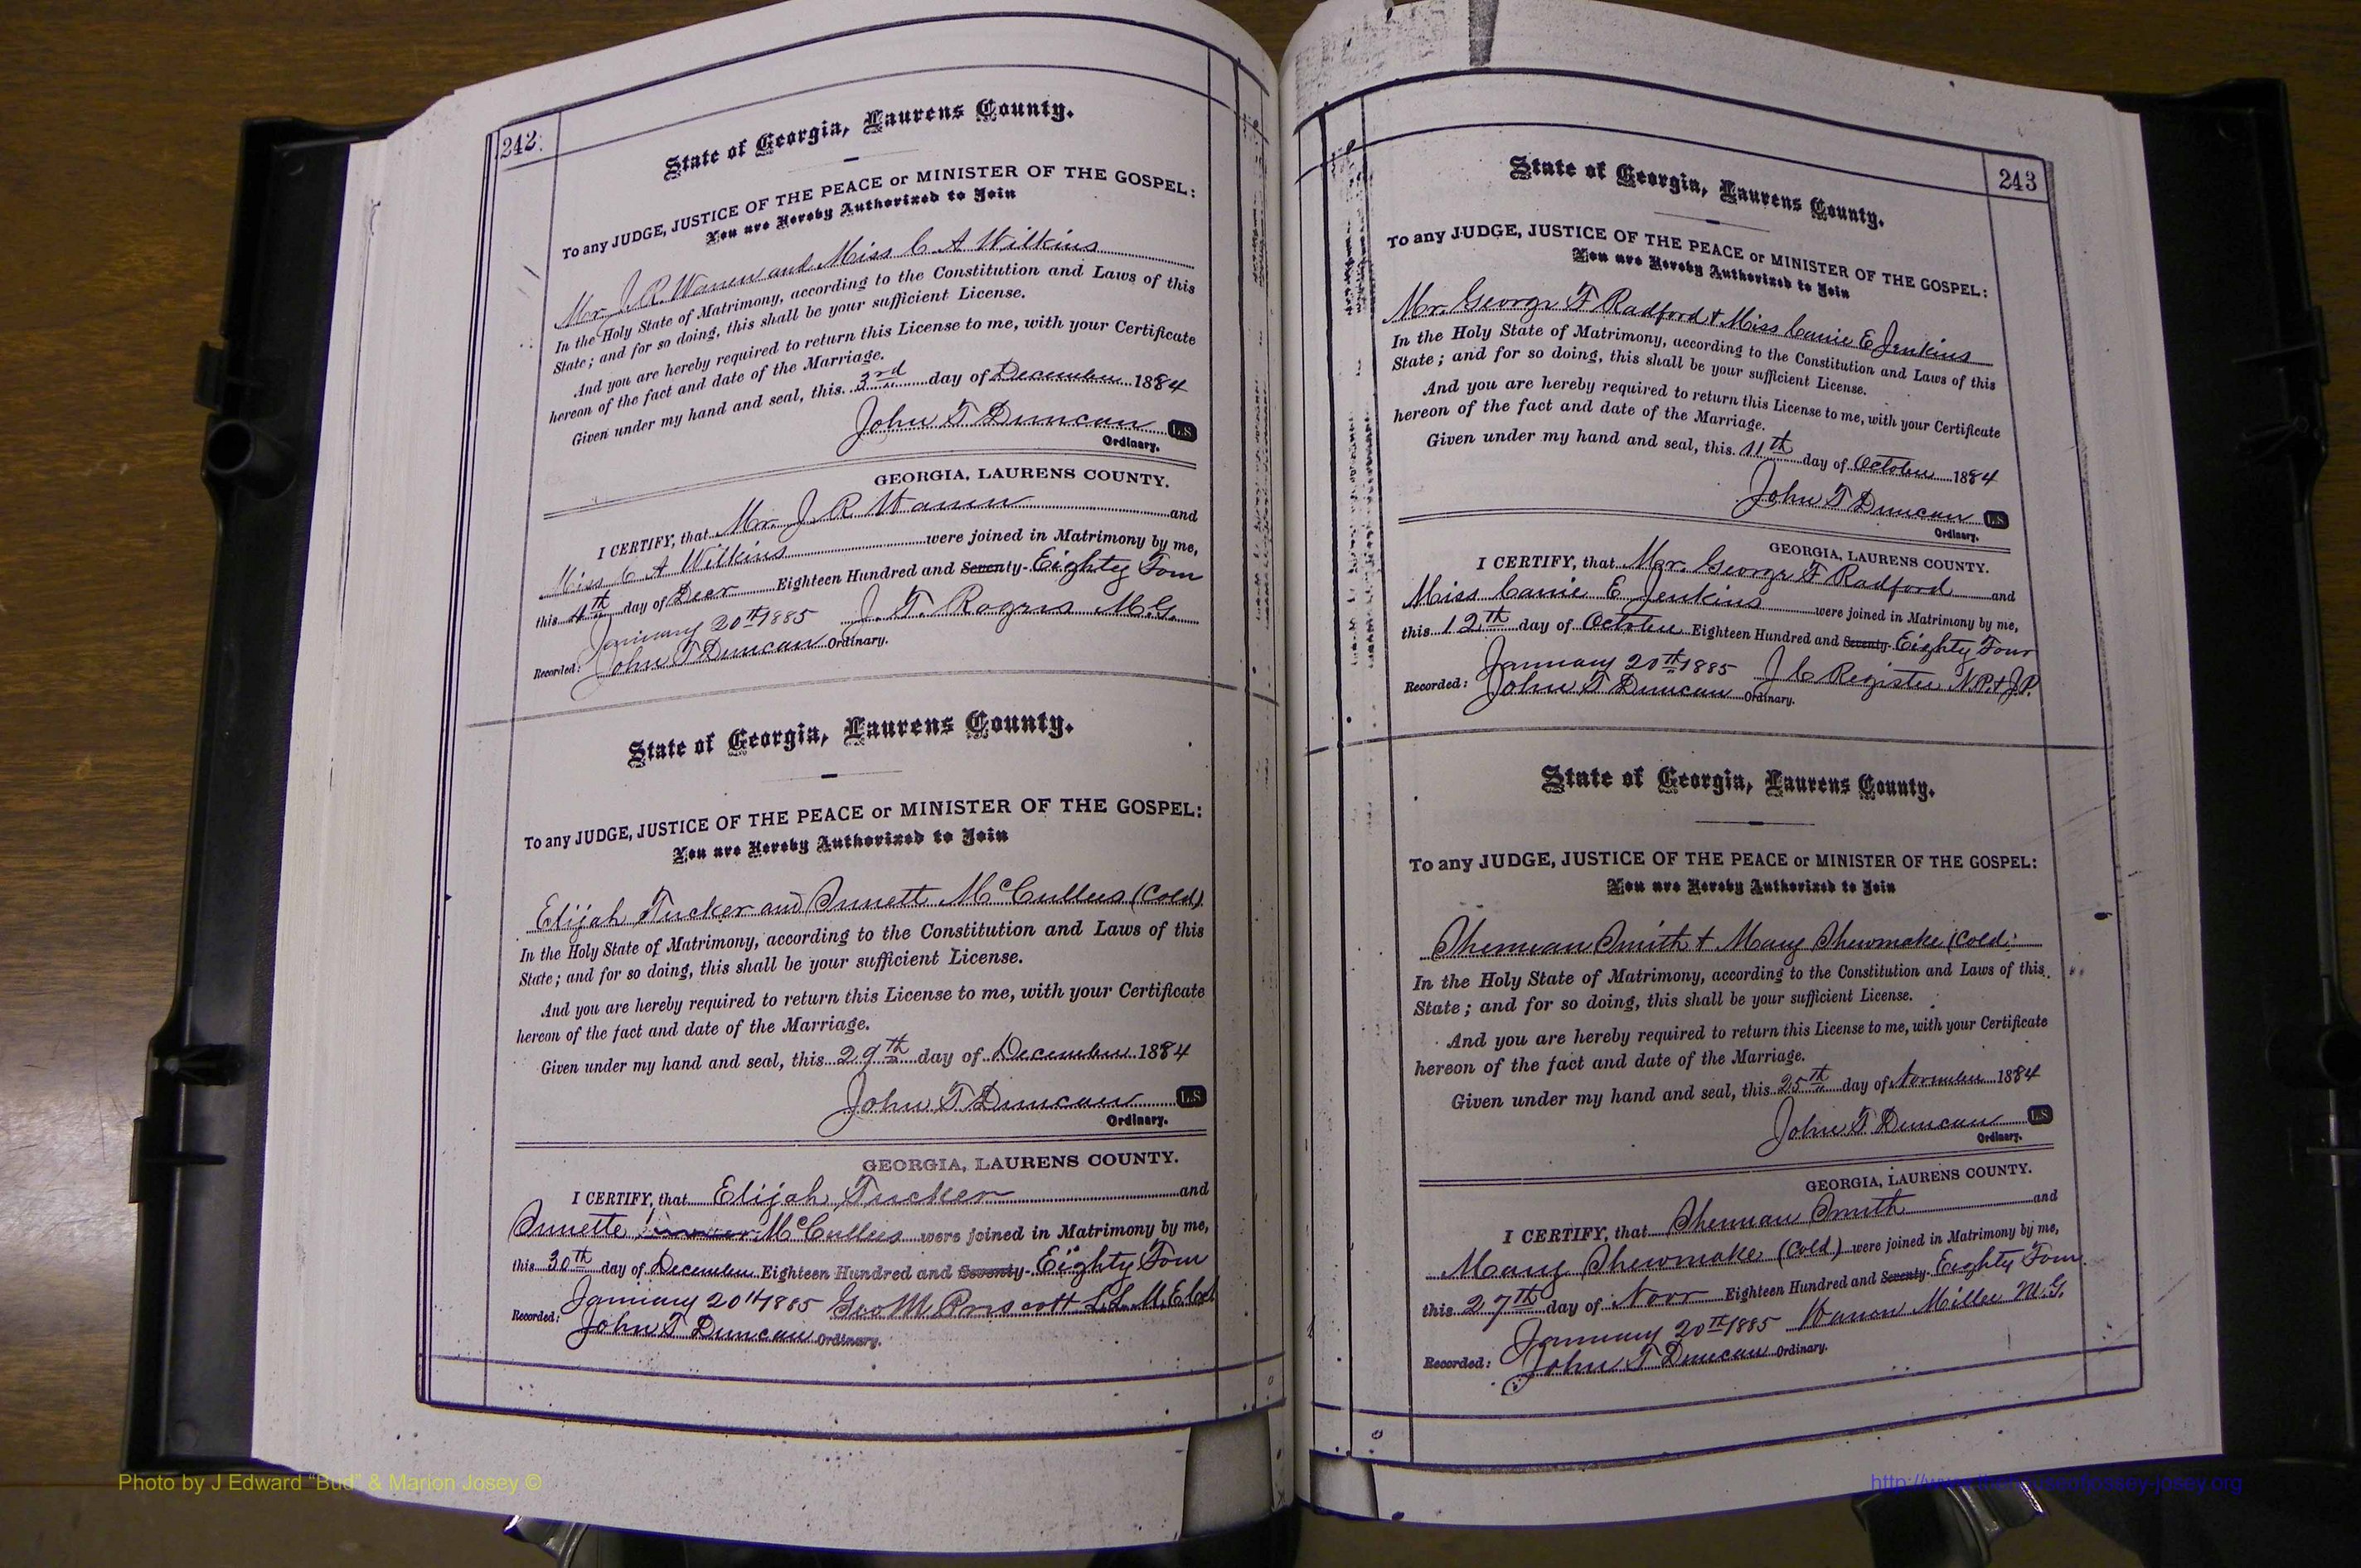 242
State of Georgia, Laurens County.
To any JUDGE, JUSTICE OF THE PEACE or MINISTER OF THE GOSPEL:
You are Hereby Authorized to Join
Mr. J. R. Warren and Miss C A Wilkins
In the Holy State of Matrimony, according to the Constitution and Laws of this
State; and for so doing, this shall be your sufficient License.
And you are hereby required to return this License to me, with your Certificate
hereon of the fact and date of the Marriage.
Given under my hand and seal, this 3rd day of December 1884
John T Duncan L.S
Ordinary.
GEORGIA, LAURENS COUNTY.
I CERTIFY, that Mr. J R Warren and
Miss C A Wilkins were joined in Matrimony by me,
this 4th day of Decr Eighteen Hundred and Seventy- Eighty Four
January 20th 1885 J. T. Rogers M.G.
Recorded: John T Duncan Ordinary.
State of Georgia, Laurens County.
To any JUDGE, JUSTICE OF THE PEACE or MINISTER OF THE GOSPEL:
You are Hereby Authorized to Join
Elijah Tucker and Annett McCullers (Cold)
In the Holy State of Matrimony, according to the Constitution and Laws of this
State; and for so doing, this shall be your sufficient License.
And you are hereby required to return this License to me, with your Certificate
hereon of the fact and date of the Marriage.
Given under my hand and seal, this 29th day of December 1884
John T Duncan L.S
Ordinary.
GEORGIA, LAURENS COUNTY.
I CERTIFY, that Elijah Tucker and
Annette McCullers were joined in Matrimony by me,
this 30th day of December Eighteen Hundred and Seventy- Eighty Four
January 20th 1885 Geo M Prescott
Recorded: John T Duncan Ordinary.
243
State of Georgia, Laurens County.
To any JUDGE, JUSTICE OF THE PEACE or MINISTER OF THE GOSPEL:
You are Hereby Authorized to Join
Mr. George F Radford & Miss Canie E Jenkins
In the Holy State of Matrimony, according to the Constitution and Laws of this
State; and for so doing, this shall be your sufficient License.
And you are hereby required to return this License to me, with your Certificate
hereon of the fact and date of the Marriage.
Given under my hand and seal, this 11th day of October 1884
John T Duncan L.S
Ordinary.
GEORGIA, LAURENS COUNTY.
I CERTIFY, that Mr. George F Radford and
Miss Canie E Jenkins were joined in Matrimony by me,
this 12th day of October Eighteen Hundred and Seventy- Eighty Four
January 20th 1885 J C Register N.P. & J.P.
Recorded: John T Duncan Ordinary.
State of Georgia, Laurens County.
To any JUDGE, JUSTICE OF THE PEACE or MINISTER OF THE GOSPEL:
You are Hereby Authorized to Join
Sherman Smith & Mary Shewmake (Cold.
In the Holy State of Matrimony, according to the Constitution and Laws of this
State; and for so doing, this shall be your sufficient License.
And you are hereby required to return this License to me, with your Certificate
hereon of the fact and date of the Marriage.
Given under my hand and seal, this 25th day of November 1884
John T Duncan L.S
Ordinary.
GEORGIA, LAURENS COUNTY.
I CERTIFY, that Sherman Smith and
Mary Shewmake (Cold) were joined in Matrimony by me,
this 27th day of Novr Eighteen Hundred and Seventy- Eighty Four
January 20th 1885 Warren Miller M.G.
Recorded: John T Duncan Ordinary.
Photo by J Edward "Bud" & Marion Josey ©
http://www.thehouseofjossey-josey.org